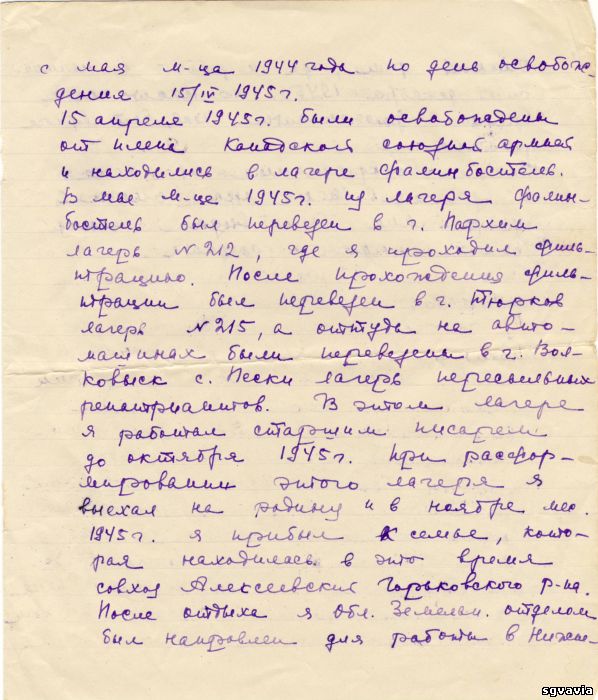 с мая м-ца 1944 года по день освобож-
дения 15/IV 1945г.
15 апреле 1945г. были освобождены
от плена Канадской союзной армией
и находились в лагере Фалинбостель.
В мае м-це 1945г. из лагеря Фалин-
бостель был переведен в г. Пархим
лагерь №212, где я проходил филь-
трацию. После прохождения филь-
трации был переведен в г. Тюрков
лагерь №215, а оттуда на авто-
машинах были переведены в г. Вол-
ковыск с. Пески лагерь пересыльных
репатриантов. В этом лагере
я работал старшим писарем
до октября 1945г. При расфор-
мировании этого лагеря я
выехал на родину и в ноябре мес.
1945г. я прибыл к семье, кото-
рая находилась в это время
совхоз Алексеевский Горьковского р-на.
После отдыха я Обл. Земельн. отделом
был направлен для работы в Нижне-
sgvavia